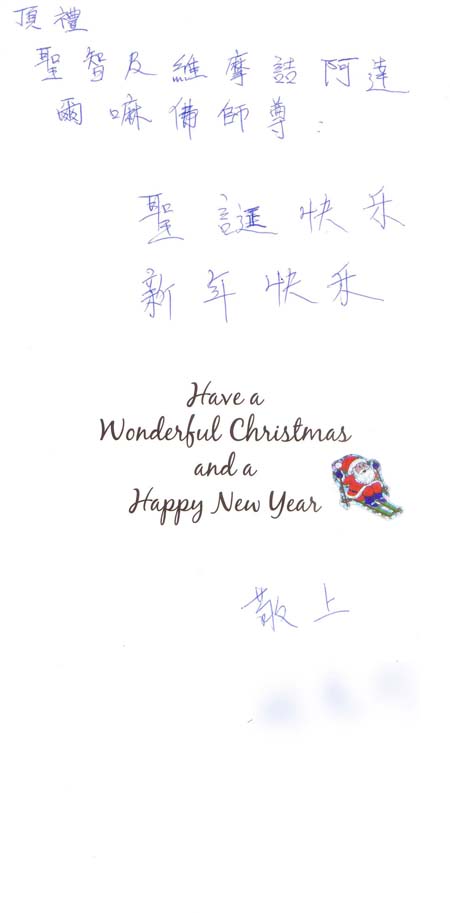 頂禮
聖智及維摩詰阿達
爾嘛佛師尊：
聖誕快乐
新年快乐
Have a
Wonderful Christmas
and a
Happy New Year
敬上